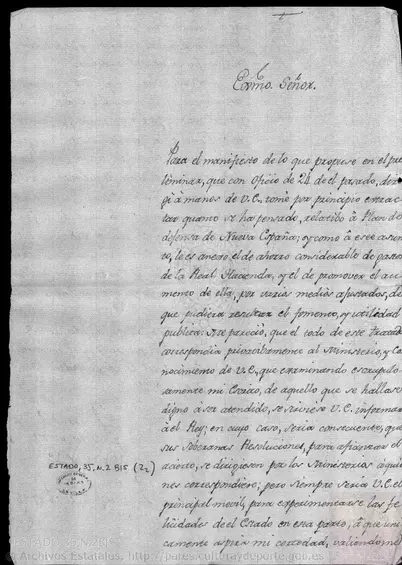 Exmo. Señor.
Para el manifiesto de lo que propuse en el pre
liminar, que con oficio de 24 de el pasado, diri
gi à manos de V.E. tomé por principio extrac
tar quanto se ha pensado, relatibo à Plan de
defensa de Nueva España; y como à este asun
to, le es anexo el de ahorro considerable de gastos
de la Real Hacienda, y el de promover el au
mento de ella, por varios medios ajustados, de
que pudiera resultar el fomento, y utilidad
publica: Me pareció, que el todo de este tratado
correspondia privatibamente al Ministerio, y co
nocimiento de V.E., que examinando escrupulo
samente mi Escrito, de aquello que se hallase
digno à ser atendido, se sirviese V.E. informar
à el Rey; en cuyo caso, seria consecuente, que
sus Soberanas Resoluciones, para afianzar el
acierto, se dirigiesen por los Ministerios à quie
nes correspondiere; pero siempre seria V.E. el
principal movil, para experimentarse las fe
licidades de el Estado en esta parte, à que uni
camente aspira mi cortedad, valiendome
ESTADO, 35, N. 2 B15 (2r)
© Archivos Estatales, http://pares.culturaydeporte.gob.es